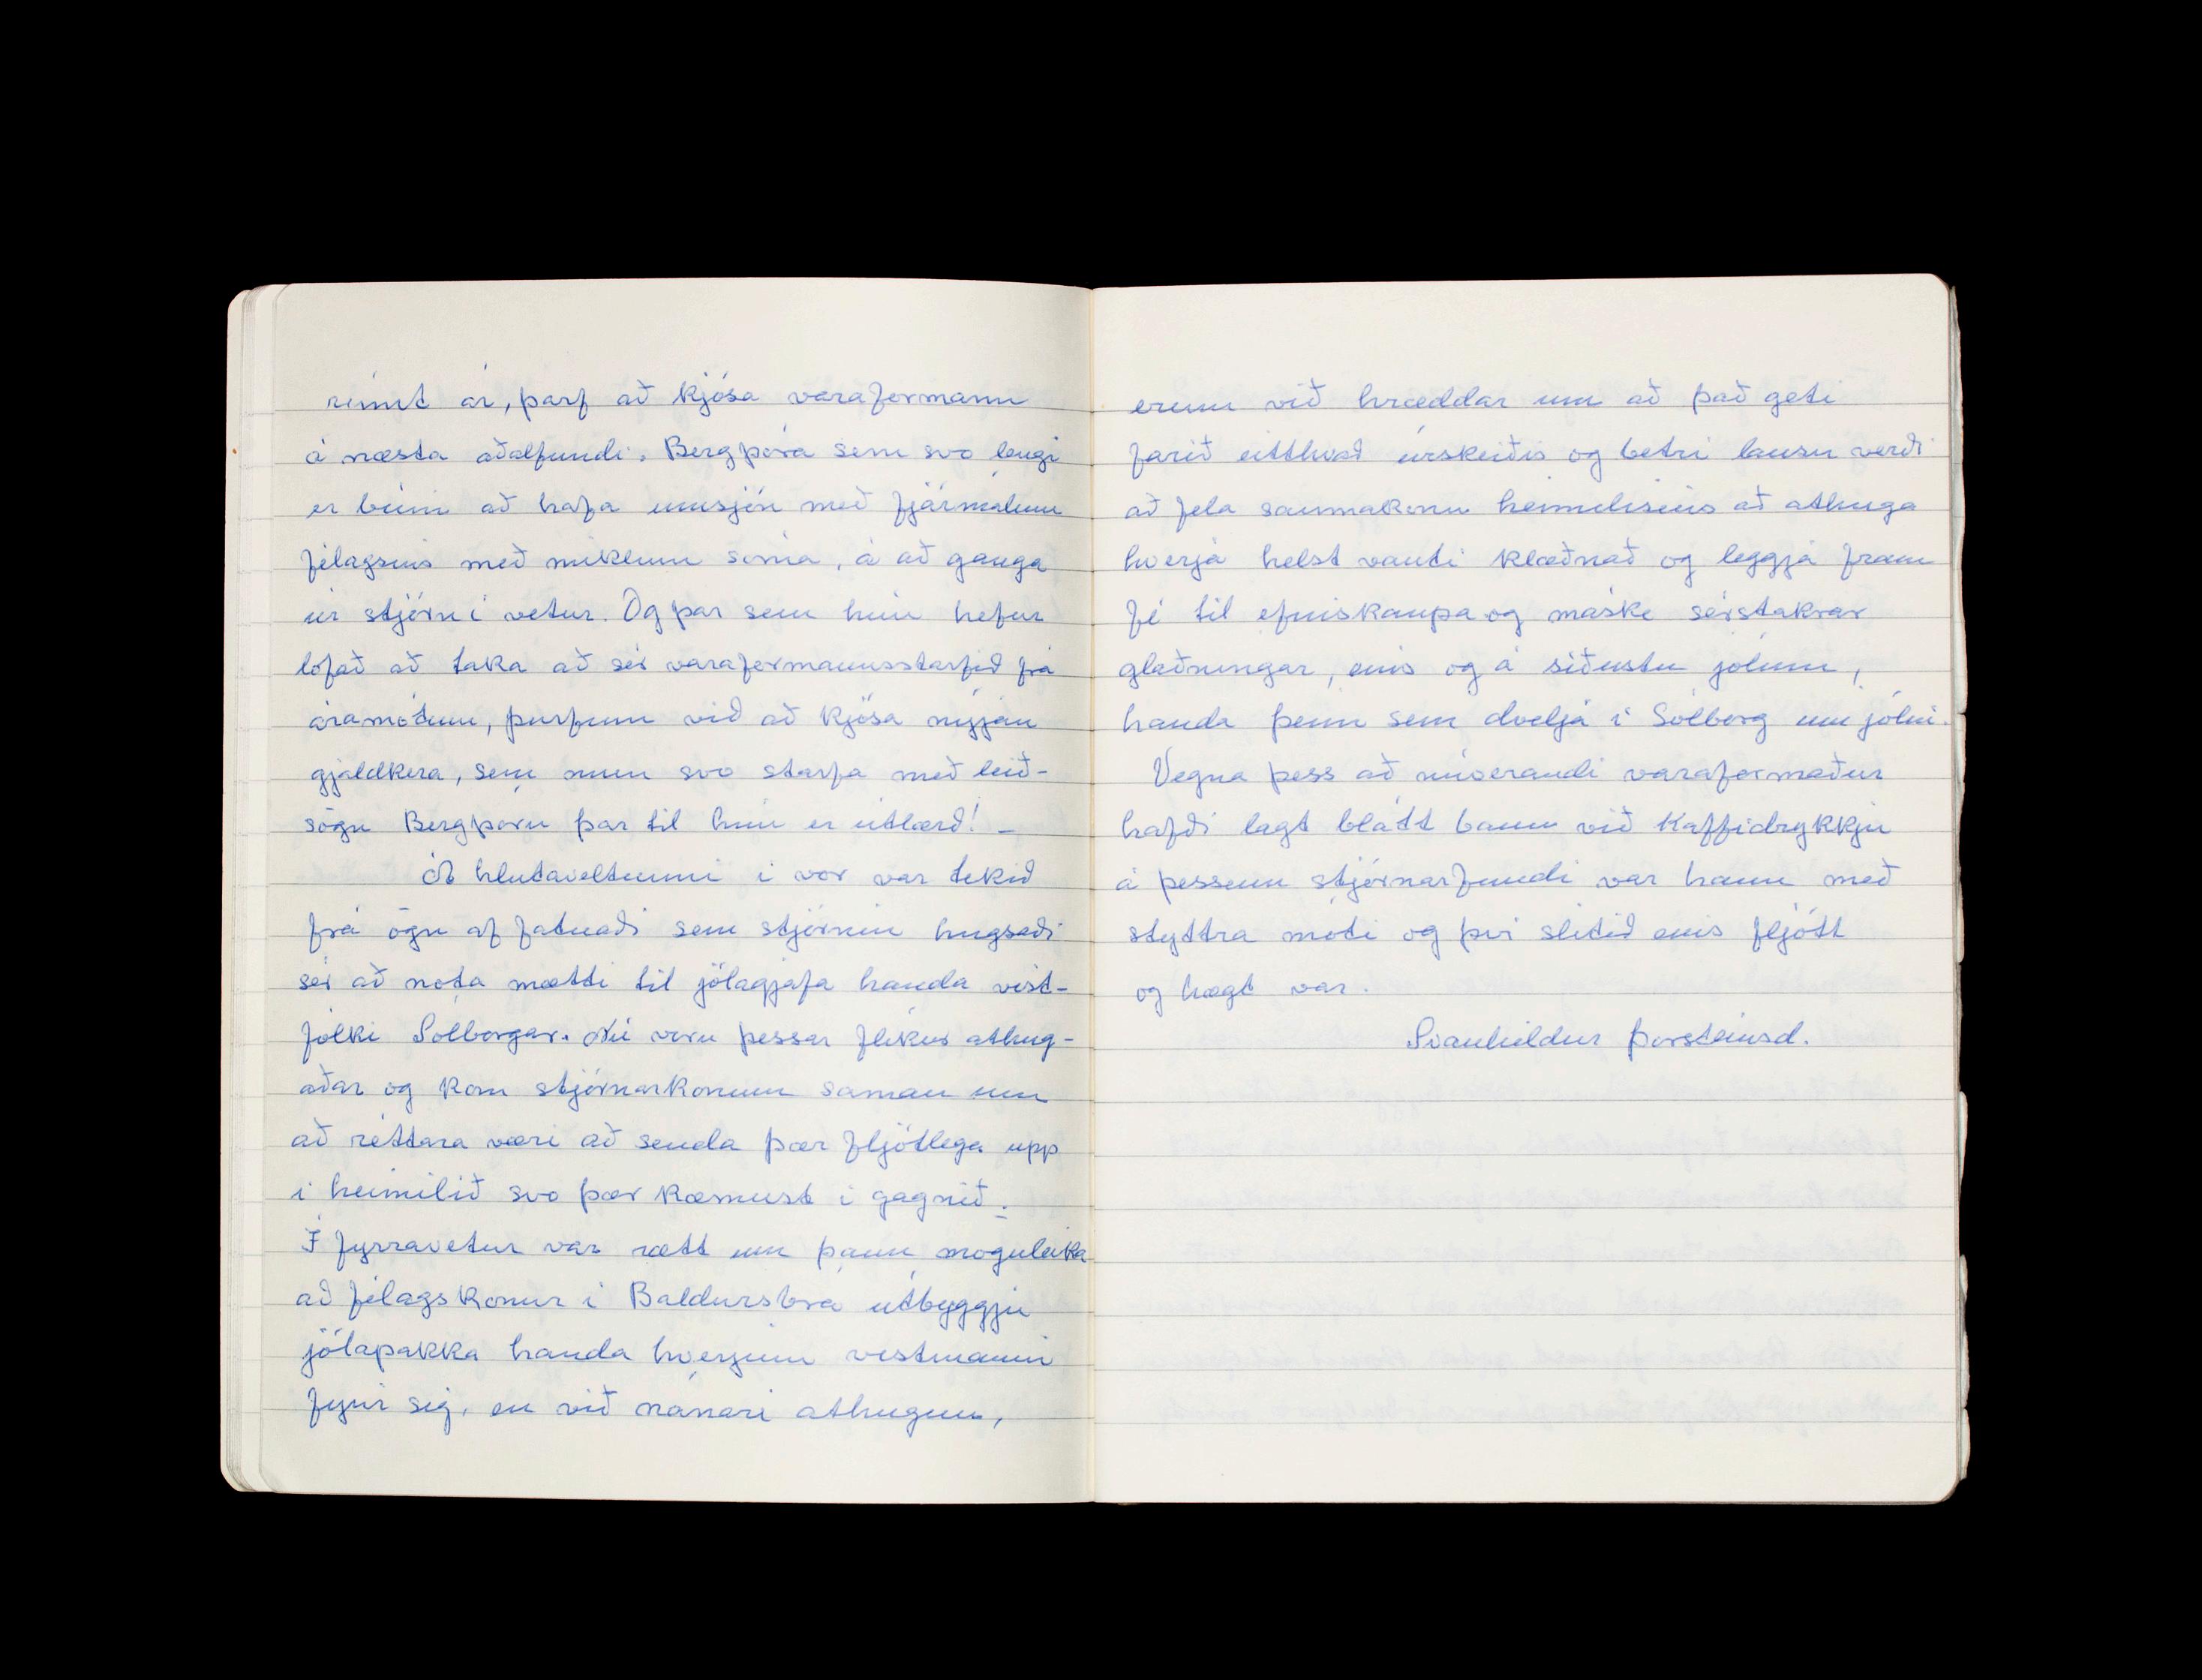 rúmt ár, þarf að kjósa varaformann
á næsta aðalfundi. Bergþóra sem svo lengi
er búin að hafa umsjón með fjármálum
félagsins með miklum sóma, á að ganga
úr stjórn í vetur. Og þar sem hún hefur
lofað að taka að sér varaformannsstarfið frá
áramótum, þurfum við að kjósa nýjan
gjaldkera, sem mun svo starfa með leið-
sögn Bergþóru þar til hún er útlærð! –
Á hlutaveltunni í vor var tekið
frá ögn af fatnaði sem stjórnin hugsaði
sér að nota mætti til jólagjafa handa vist-
fólki Sólborgar. Nú voru þessar flíkur athug-
aðar og kom stjórnarkonum saman um
að réttara væri að senda þær fljótlega upp
í heimilið svo þær kæmust í gagnið.
Í fyrravetur var rætt um þann moguleika
að félagskonur í Baldursbrá útbyggju
jólapakka handa hverjum vistmanni
fyrir sig, en við nánari athugun,
erum við hræddar um að það geti
farið eitthvað úrskeiðis og betri lausn verði
að fela saumakonu heimilisins að athuga
hverja helst vanti klæðnað og leggja fram
fé til efniskaupa og máske sérstakrar
glaðningar, eins og á síðustu jólum,
handa þeim sem dvelja í Sólborg um jólin.
Vegna þess að núverandi varaformaður
hafði lagt blátt bann við kaffidrykkju
á þessum stjórnarfundi var hann með
styttra móti og því slitið eins fljótt
og hægt var.
Svanhildur Þorsteinsd.